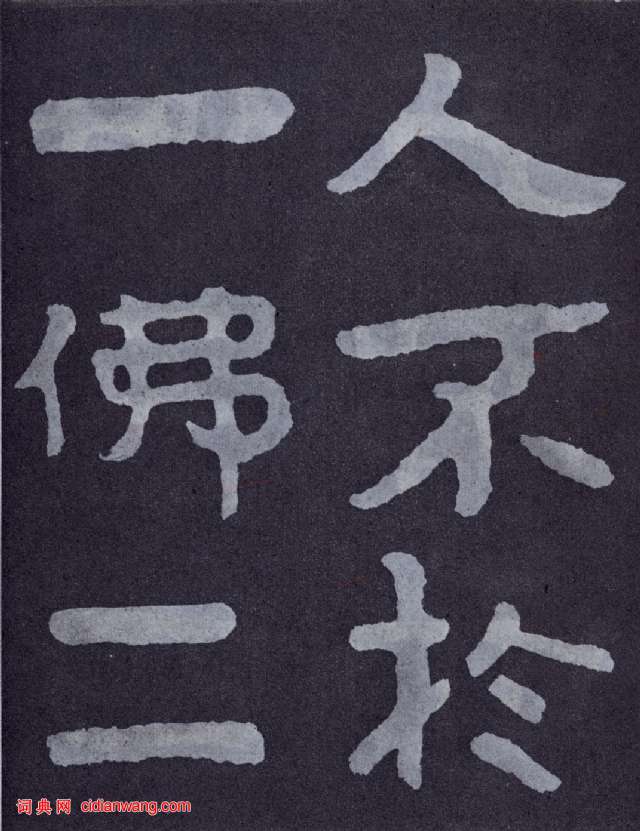 人不於
一佛二
词典网 cidianwang.com